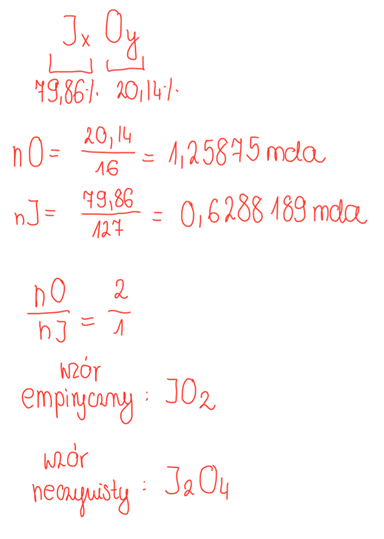 JxOy
79,86% 20,14%
nO = 20,14/16 = 1,25875 mola
nJ = 79,86/127 = 0,6288189 mola
nO/nJ = 2/1
wzór
empiryczny : JO₂
wzór
rzeczywisty : J₂O₄